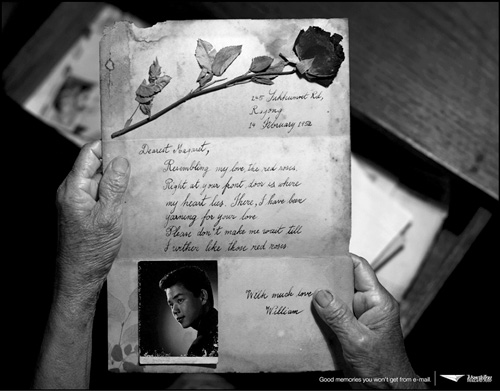 245 Sukhumvit Rd.,
Rayong
14 February 1952
Dearest Margaret,
Resembling my love, the red roses.
Right at your front door is where
my heart lies. There, I have been
yearning for your love
Please don't make me wait till
I wither like those red roses
With much love
William
Good memories you won't get from e-mail.